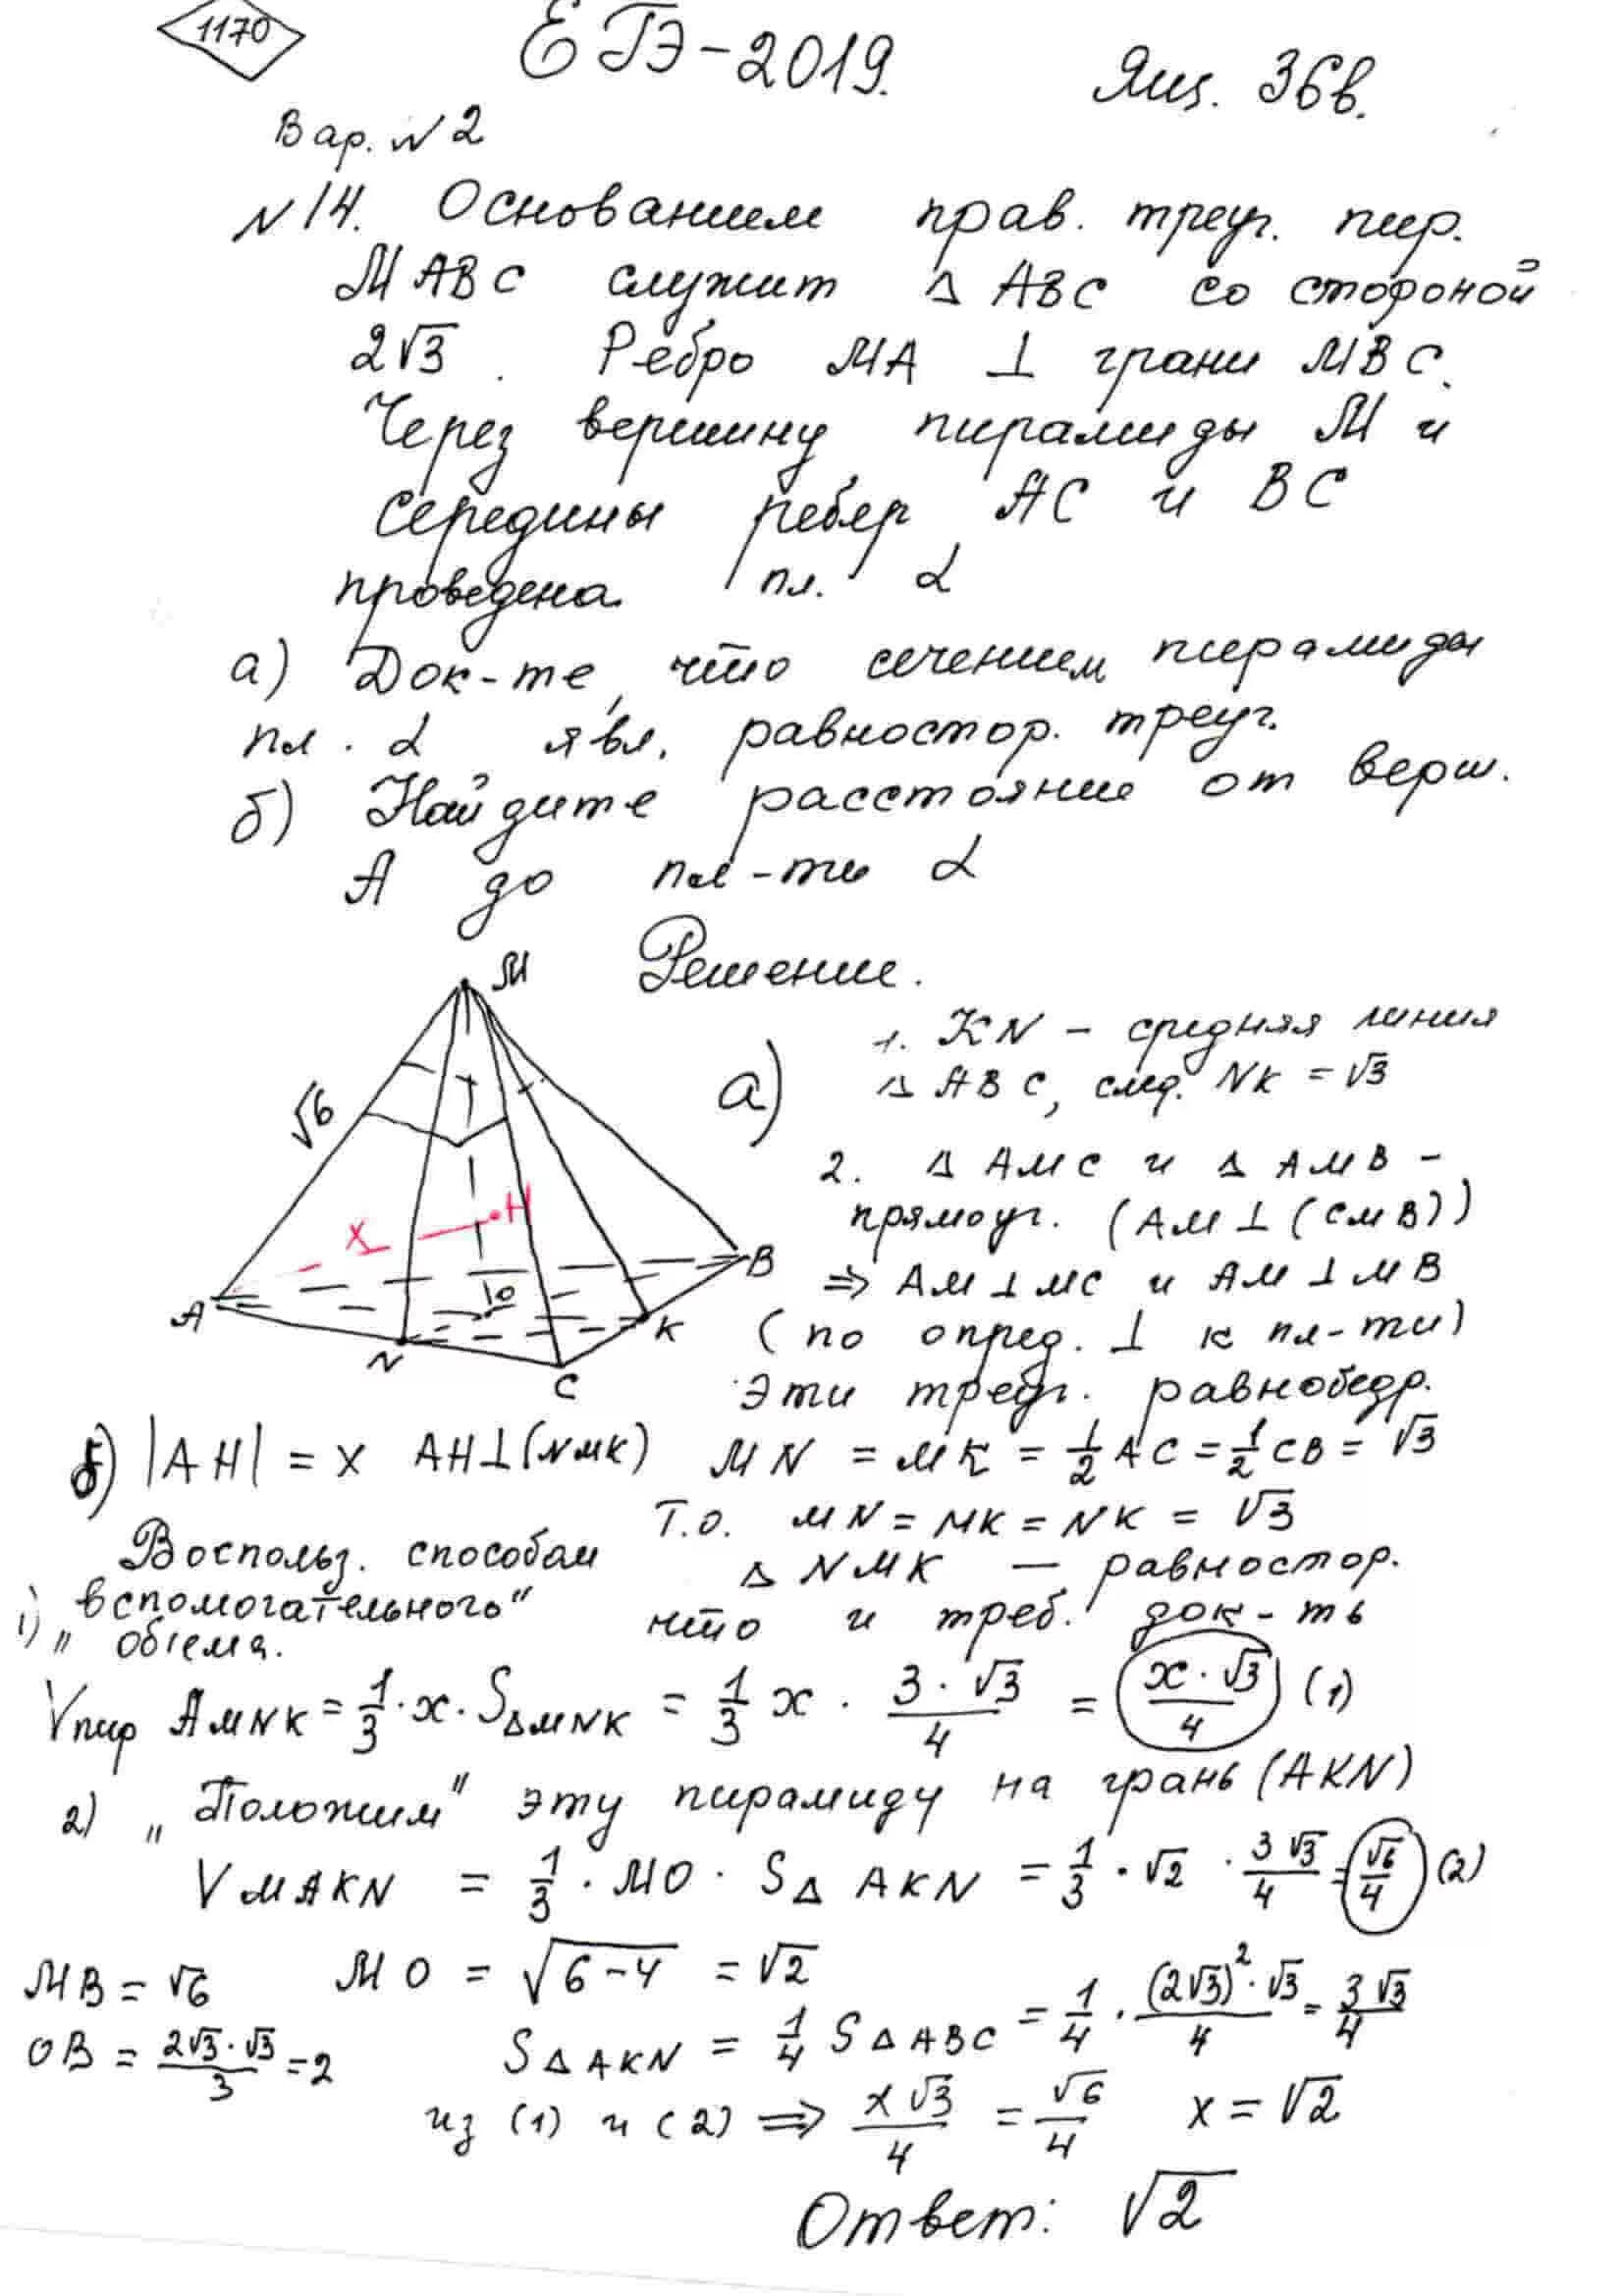 1170
ЕГЭ-2019.
Ящ. 36в.
Вар. N2
N14. Основанием прав. треуг. пир.
МАВС служит Δ АВС со стороной
2√3. Ребро МА ⊥ грани МВС.
Через вершину пирамиды М и
середины ребер АС и ВС
проведена пл. α
а) Док-те, что сечением пирамиды
пл. α явл. равностор. треуг.
б) Найдите расстояние от верш.
А до пл-ти α
Решение.
M
√6
X
H
A
N
C
K
B
O
а)
1. KN - средняя линия
Δ АВС, след. NK = √3
2. Δ АМС и Δ АМВ -
прямоуг. (АМ ⊥ (СМВ))
⇒ АМ ⊥ МС и АМ ⊥ МВ
(по опред. ⊥ к пл-ти)
Эти треуг. равнобедр.
MN = MK = 1/2 AC = 1/2 CB = √3
Т.о. MN = MK = NK = √3
Δ NMK — равностор.
что и треб. док-ть
б) |AH| = x AH⊥(NMK)
Воспольз. способом
1) "вспомогательного"
объема.
Vпир AMNK = 1/3 · x · SΔMNK = 1/3 x · 3·√3/4 = x·√3/4 (1)
2) "Положим" эту пирамиду на грань (AKN)
V MAKN = 1/3 · MO · SΔ AKN = 1/3 · √2 · 3√3/4 = √6/4 (2)
MB = √6 MO = √(6-4) = √2
OB = 2√3·√3/3 = 2 SΔAKN = 1/4 SΔABC = 1/4 · (2√3)²·√3/4 = 3√3/4
из (1) и (2) ⇒ x√3/4 = √6/4 x = √2
Ответ: √2